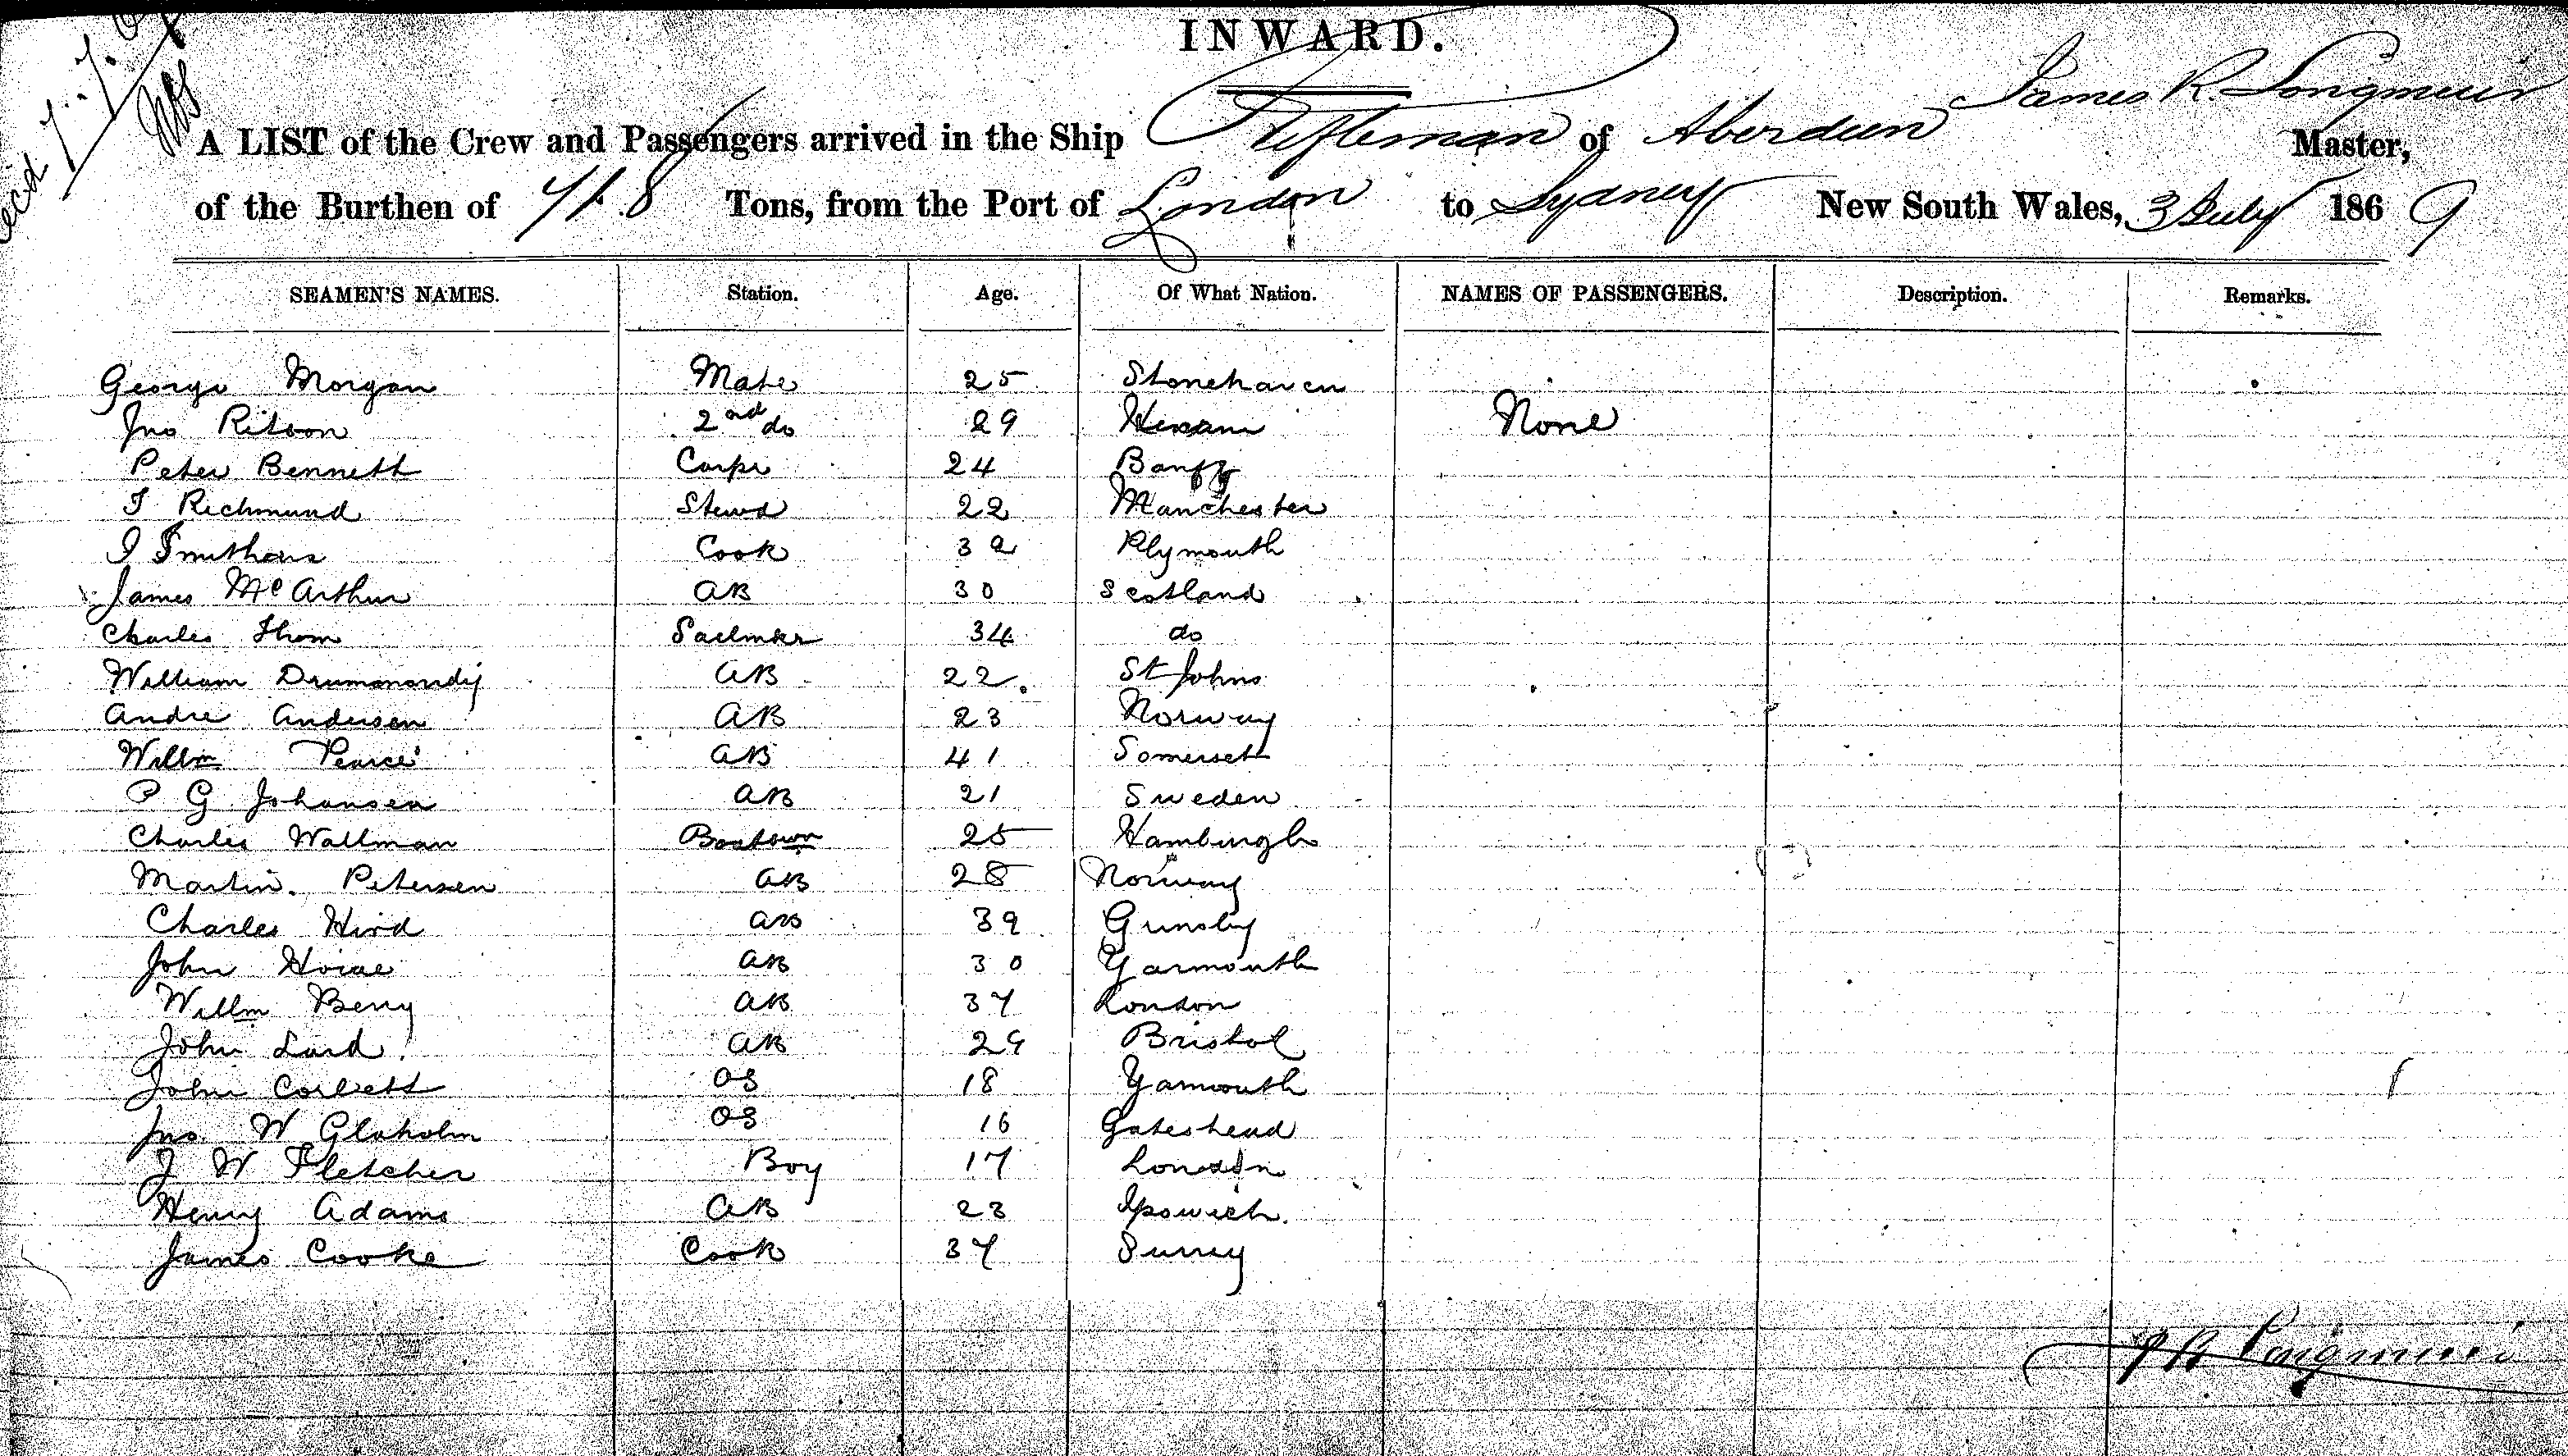 INWARD.
James R. Longmuir
A LIST of the Crew and Passengers arrived in the Ship Rifleman of Aberdeen Master,
of the Burthen of 718 Tons, from the Port of London to Sydney New South Wales, 3 July 1869
SEAMEN'S NAMES. Station. Age. Of What Nation. NAMES OF PASSENGERS. Description. Remarks.
George Morgan Mate 25 Stonehaven
Jno Ritson 2nd do 29 None
Peter Bennett Carpr 24 Banff
Richmund Stewd 22 Manchester
Cook 32 Plymouth
James McArthur AB 30 Scotland
Charles Thom Sailmkr 34 do
William AB 22 St Johns
Andre Andersen AB 23 Norway
Willm Pearce AB 41 Somerset
P G Johansen AB 21 Sweden
Charles Wallman Boatswn 25 Hamburgh
Martin Petersen AB 28 Norway
Charles Hird AB 39 Grimsby
John AB 30 Yarmouth
Willm Berry AB 37 London
John AB 29 Bristol
John Corbett OS 18 Yarmouth
Jno W Glaholm OS 16 Gateshead
J W Fletcher Boy 17 London
Henry Adams AB 23 Ipswich
James Cooke Cook 37 Surrey
J R Longmuir